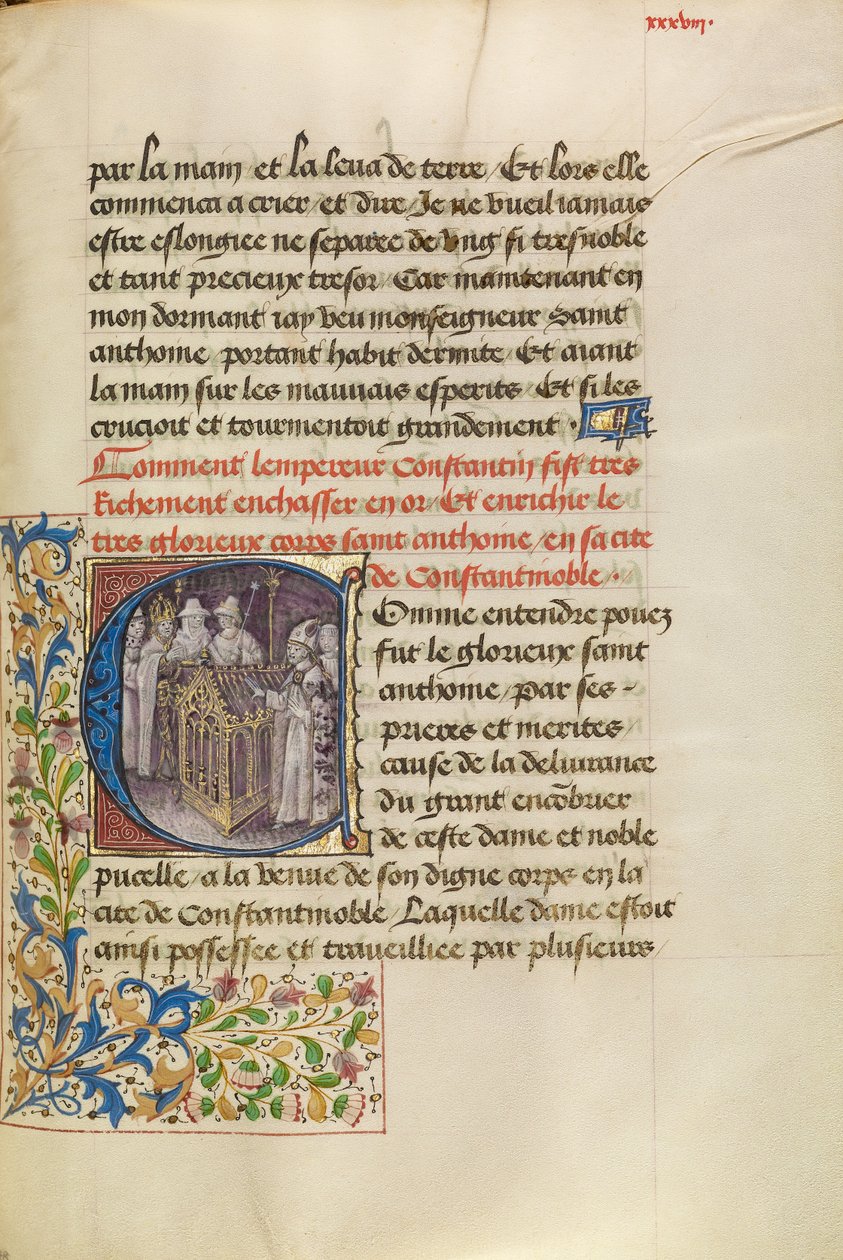 xxxviij.
par la main et la leua de terre / Et lors elle
commenca a crier / et dire / Je ne vueil iamais
estre eslongiee ne separee de vng si tresnoble
et tant precieux tresor / Car maintenant en
mon dormant iay veu monseigneur Saint
anthoine / portant habit dermite / Et aiant
la main sur les mauuais esperits / Et si les
crucioit et tourmentoit grandement .
Comment lempereur Constantin fist tres
Richement enchasser en or / Et enrichir le
tres glorieux corps saint anthoine / en sa cite
de Constantinoble .
Comme entendre pouez
fut le glorieux saint
anthoine / par ses -
prieres et merites /
cause de la deliurance
du grant encōbrier
de ceste dame et noble
pucelle / a la venue de son digne corps en la
cite de Constantinoble / Laquelle dame estoit
ainsi possessee et traueilliee par plusieurs /